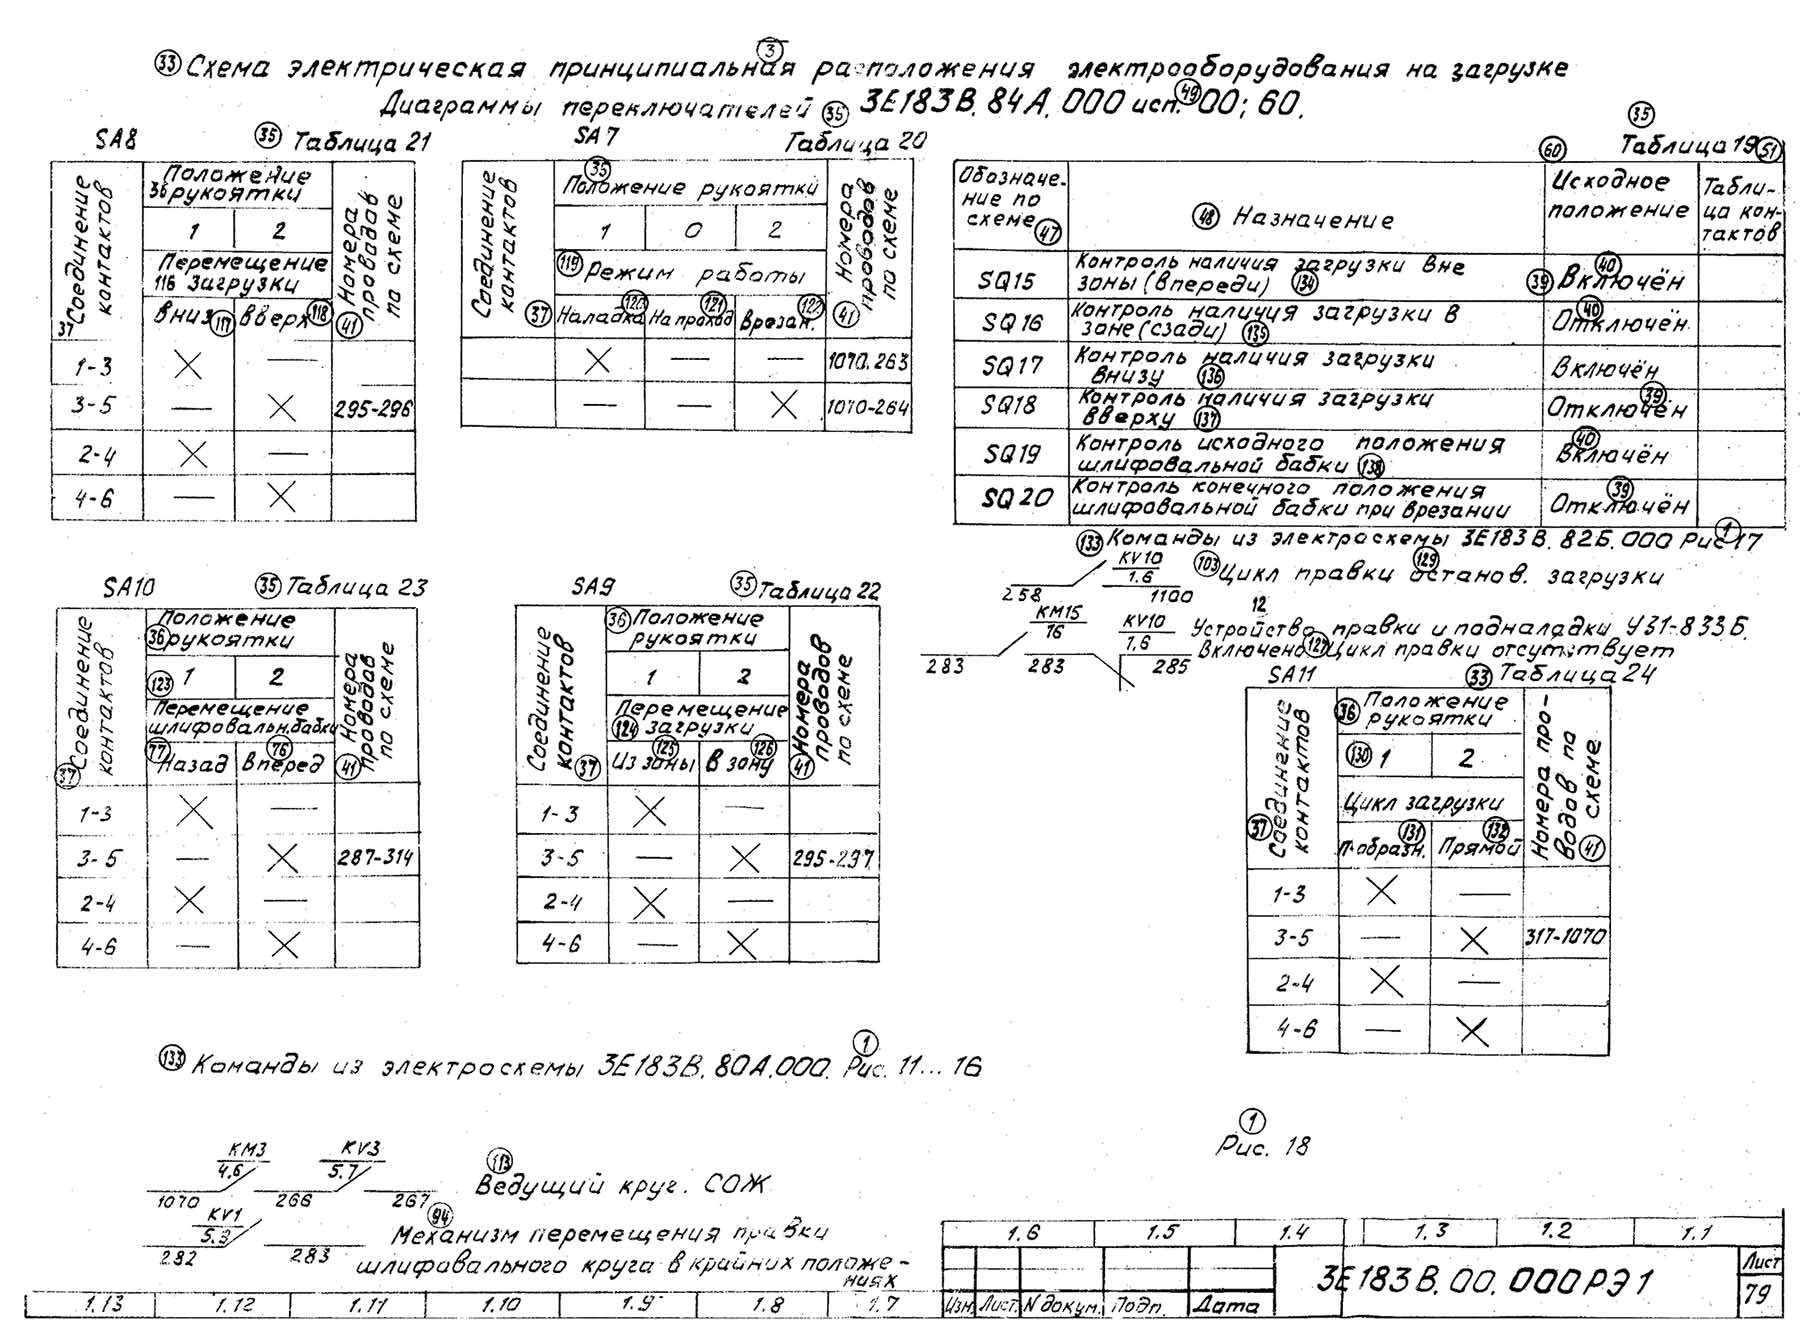 3
33 Схема электрическая принципиальная расположения электрооборудования на загрузке
Диаграммы переключателей 35 3Е183В.84А.000 исп. 49 00; 60.
SA8 35 Таблица 21
Соединение контактов 37
Положение
36 рукоятки
1 2
Перемещение
116 загрузки
вниз 117 вверх 118
Номера проводов по схеме 41
1-3 X —
3-5 — X 295-296
2-4 X —
4-6 — X
SA7 Таблица 20
Соединение контактов 37
35
Положение рукоятки
1 0 2
119 Режим работы
120 121 122
Наладка На проход Врезан.
Номера проводов по схеме 41
X — — 1070-263
— — X 1070-264
35
60 Таблица 19 51
Обозначе-
ние по
схеме 47
48 Назначение
Исходное
положение
Табли-
ца кон-
тактов
SQ15 Контроль наличия загрузки вне
зоны (впереди) 134 39 40 Включён
SQ16 Контроль наличия загрузки в
зоне (сзади) 135 40 Отключён
SQ17 Контроль наличия загрузки
внизу 136 Включён
SQ18 Контроль наличия загрузки
вверху 137 39 Отключён
SQ19 Контроль исходного положения
шлифовальной бабки 138 40 Включён
SQ20 Контроль конечного положения
шлифовальной бабки при врезании 39 Отключён
133 Команды из электросхемы 3Е183В.82Б.000 Рис 1 17
KV10
1.6
258 1100
103 Цикл правки 129 останов. загрузки
12
KM15
16
KV10
1.6
283 283 285
Устройство правки и подналадки У31-833Б.
Включено Цикл правки отсутствует
SA10 35 Таблица 23
Соединение контактов 37
Положение
36 рукоятки
123 1 2
Перемещение
шлифовальн. бабки
77 Назад 76 Вперед
Номера проводов по схеме 41
1-3 X —
3-5 — X 287-314
2-4 X —
4-6 — X
SA9 35 Таблица 22
Соединение контактов 37
36 Положение
рукоятки
1 2
Перемещение
124 загрузки
125 126
Из зоны В зону
Номера проводов по схеме 41
1-3 X —
3-5 — X 295-297
2-4 X —
4-6 — X
SA11 33 Таблица 24
Соединение контактов 37
36 Положение
рукоятки
130 1 2
Цикл загрузки
131 132
П-образн. Прямой
Номера про-
водов по
схеме 41
1-3 X —
3-5 — X 317-1070
2-4 X —
4-6 — X
133 Команды из электросхемы 3Е183В.80А.000. 1 Рис. 11...16
1
Рис. 18
KM3 KV3
4.6 5.7
1070 266 267
113
Ведущий круг. СОЖ
KV1
5.3
282 283
94
Механизм перемещения правки
шлифовального круга в крайних положе-
ниях
1.6 1.5 1.4 1.3 1.2 1.1
3Е183В.00.000РЭ1
Лист
79
Изм. Лист N докум. Подп. Дата
1.13 1.12 1.11 1.10 1.9 1.8 1.7